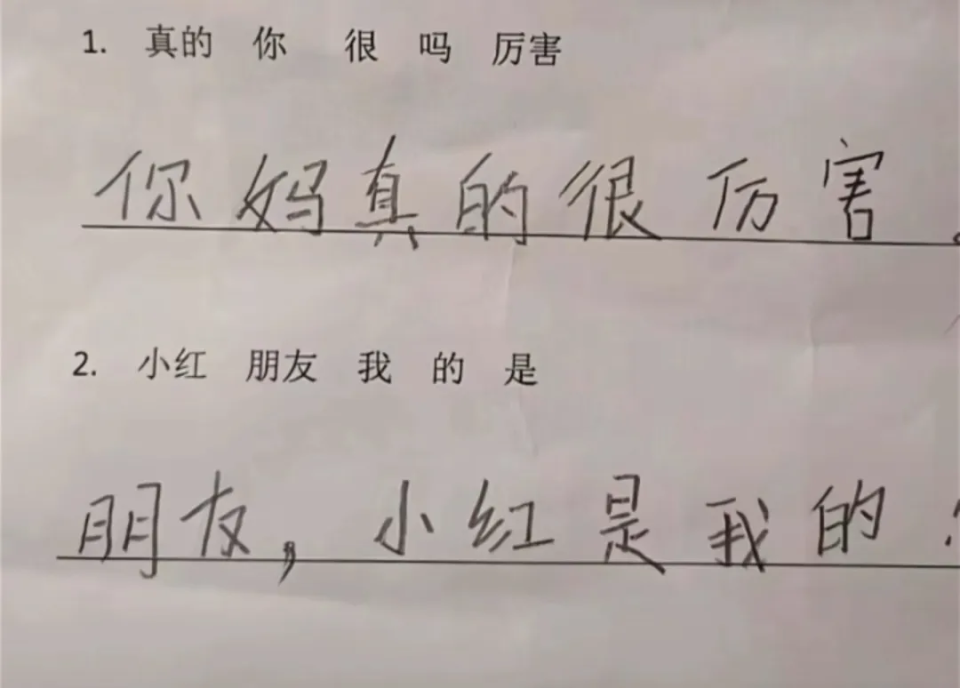 1. 真的 你 很 吗 厉害
你妈真的很厉害。
2. 小红 朋友 我 的 是
朋友，小红是我的